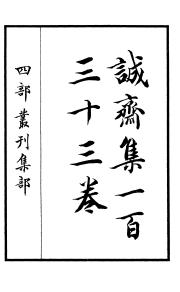 誠齋集一百
三十三卷
四部叢刊集部